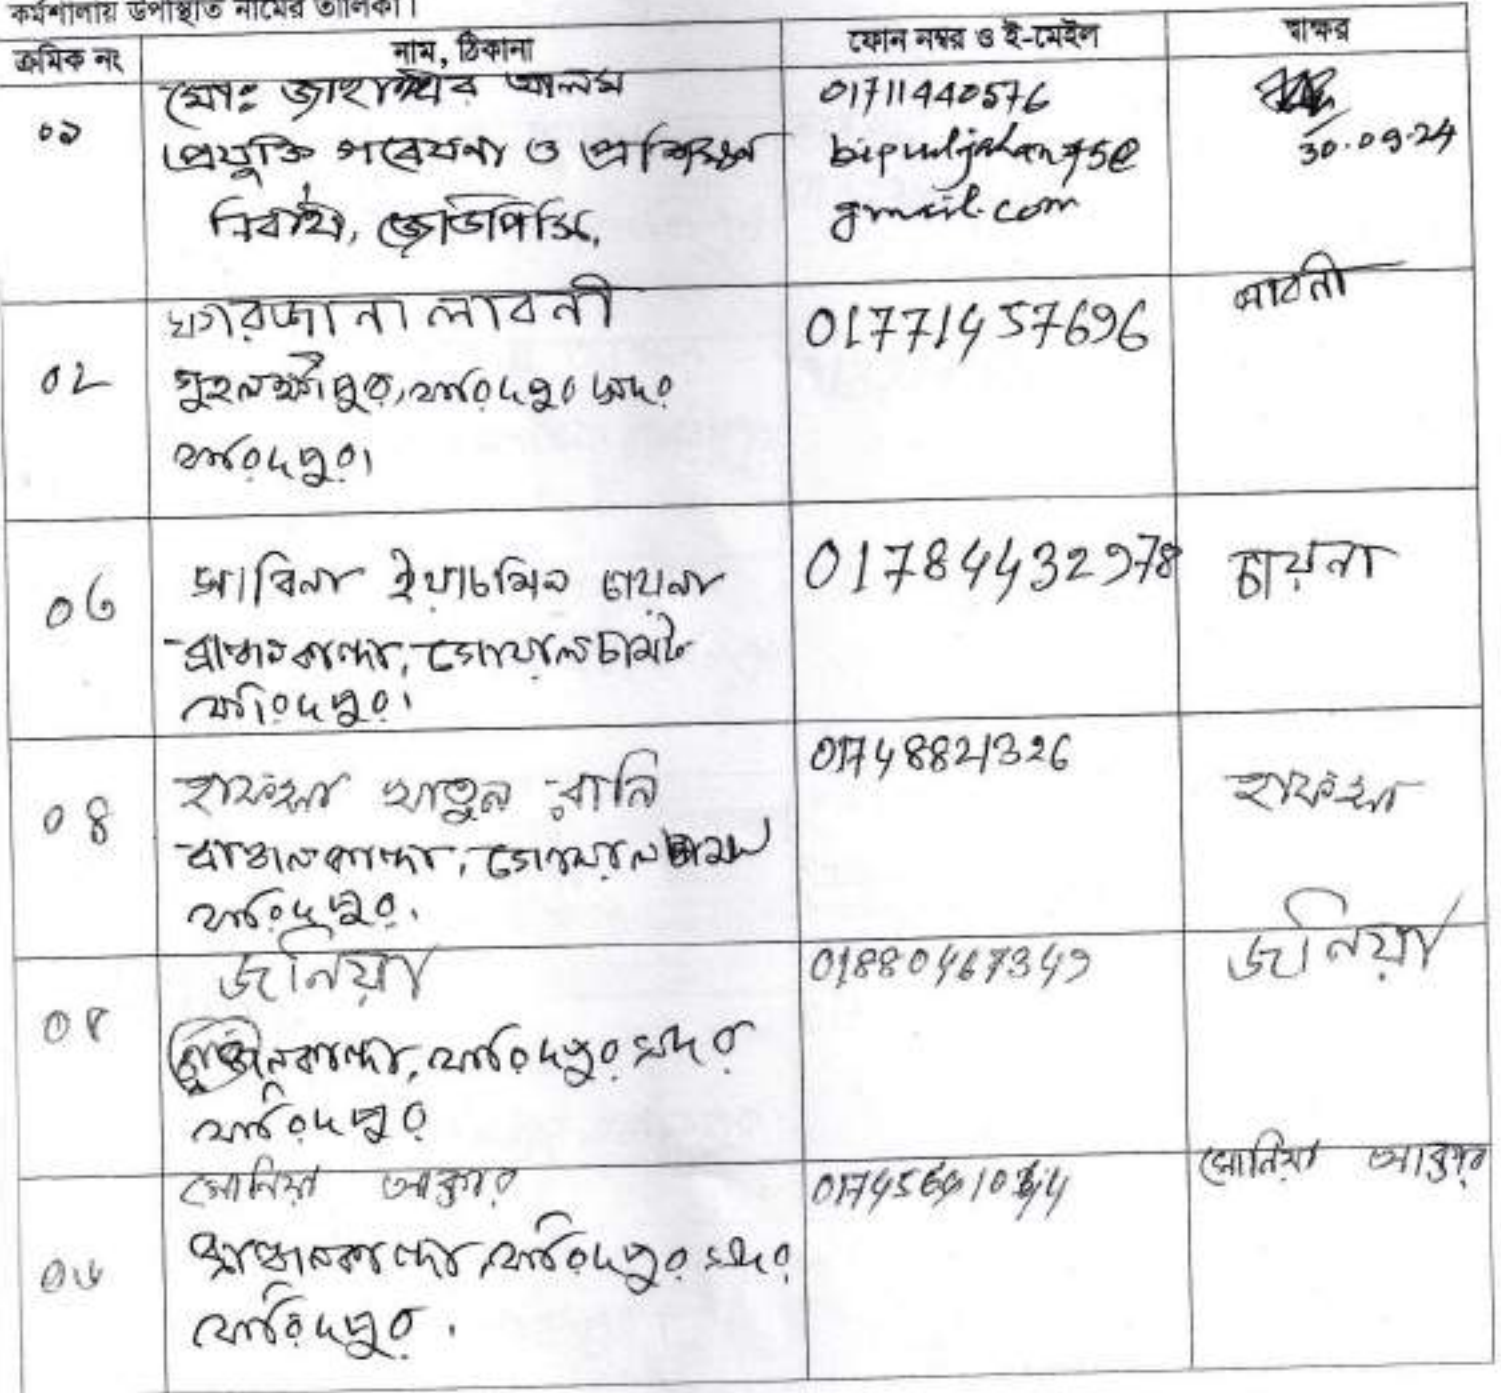 কর্মশালায় উপস্থিত নামের তালিকা।
ক্রমিক নং
নাম, ঠিকানা
ফোন নম্বর ও ই-মেইল
স্বাক্ষর
০১
মোঃ জাহাঙ্গীর আলম
প্রযুক্তি গবেষনা ও প্রশিক্ষণ
নির্বাহী,
01711440576
gmail.com
30.09.24
০২
ফারজানা লাবনী
ফরিদপুর সদর
ফরিদপুর।
01771457696
লাবনী
০৩
সাবিনা ইয়াচমিন চায়না
ব্রাহ্মনকান্দা, গোয়ালচামট
ফরিদপুর।
01784432978
চায়না
০৪
হাফসা খাতুন রানি
ব্রাহ্মনকান্দা, গোয়ালচামট
ফরিদপুর।
01748821326
হাফসা
০৫
জনিয়া
ব্রাহ্মনকান্দা, ফরিদপুর সদর
ফরিদপুর
01880467349
জনিয়া
০৬
সোনিয়া আক্তার
ব্রাহ্মনকান্দা, ফরিদপুর সদর
ফরিদপুর।
সোনিয়া আক্তার